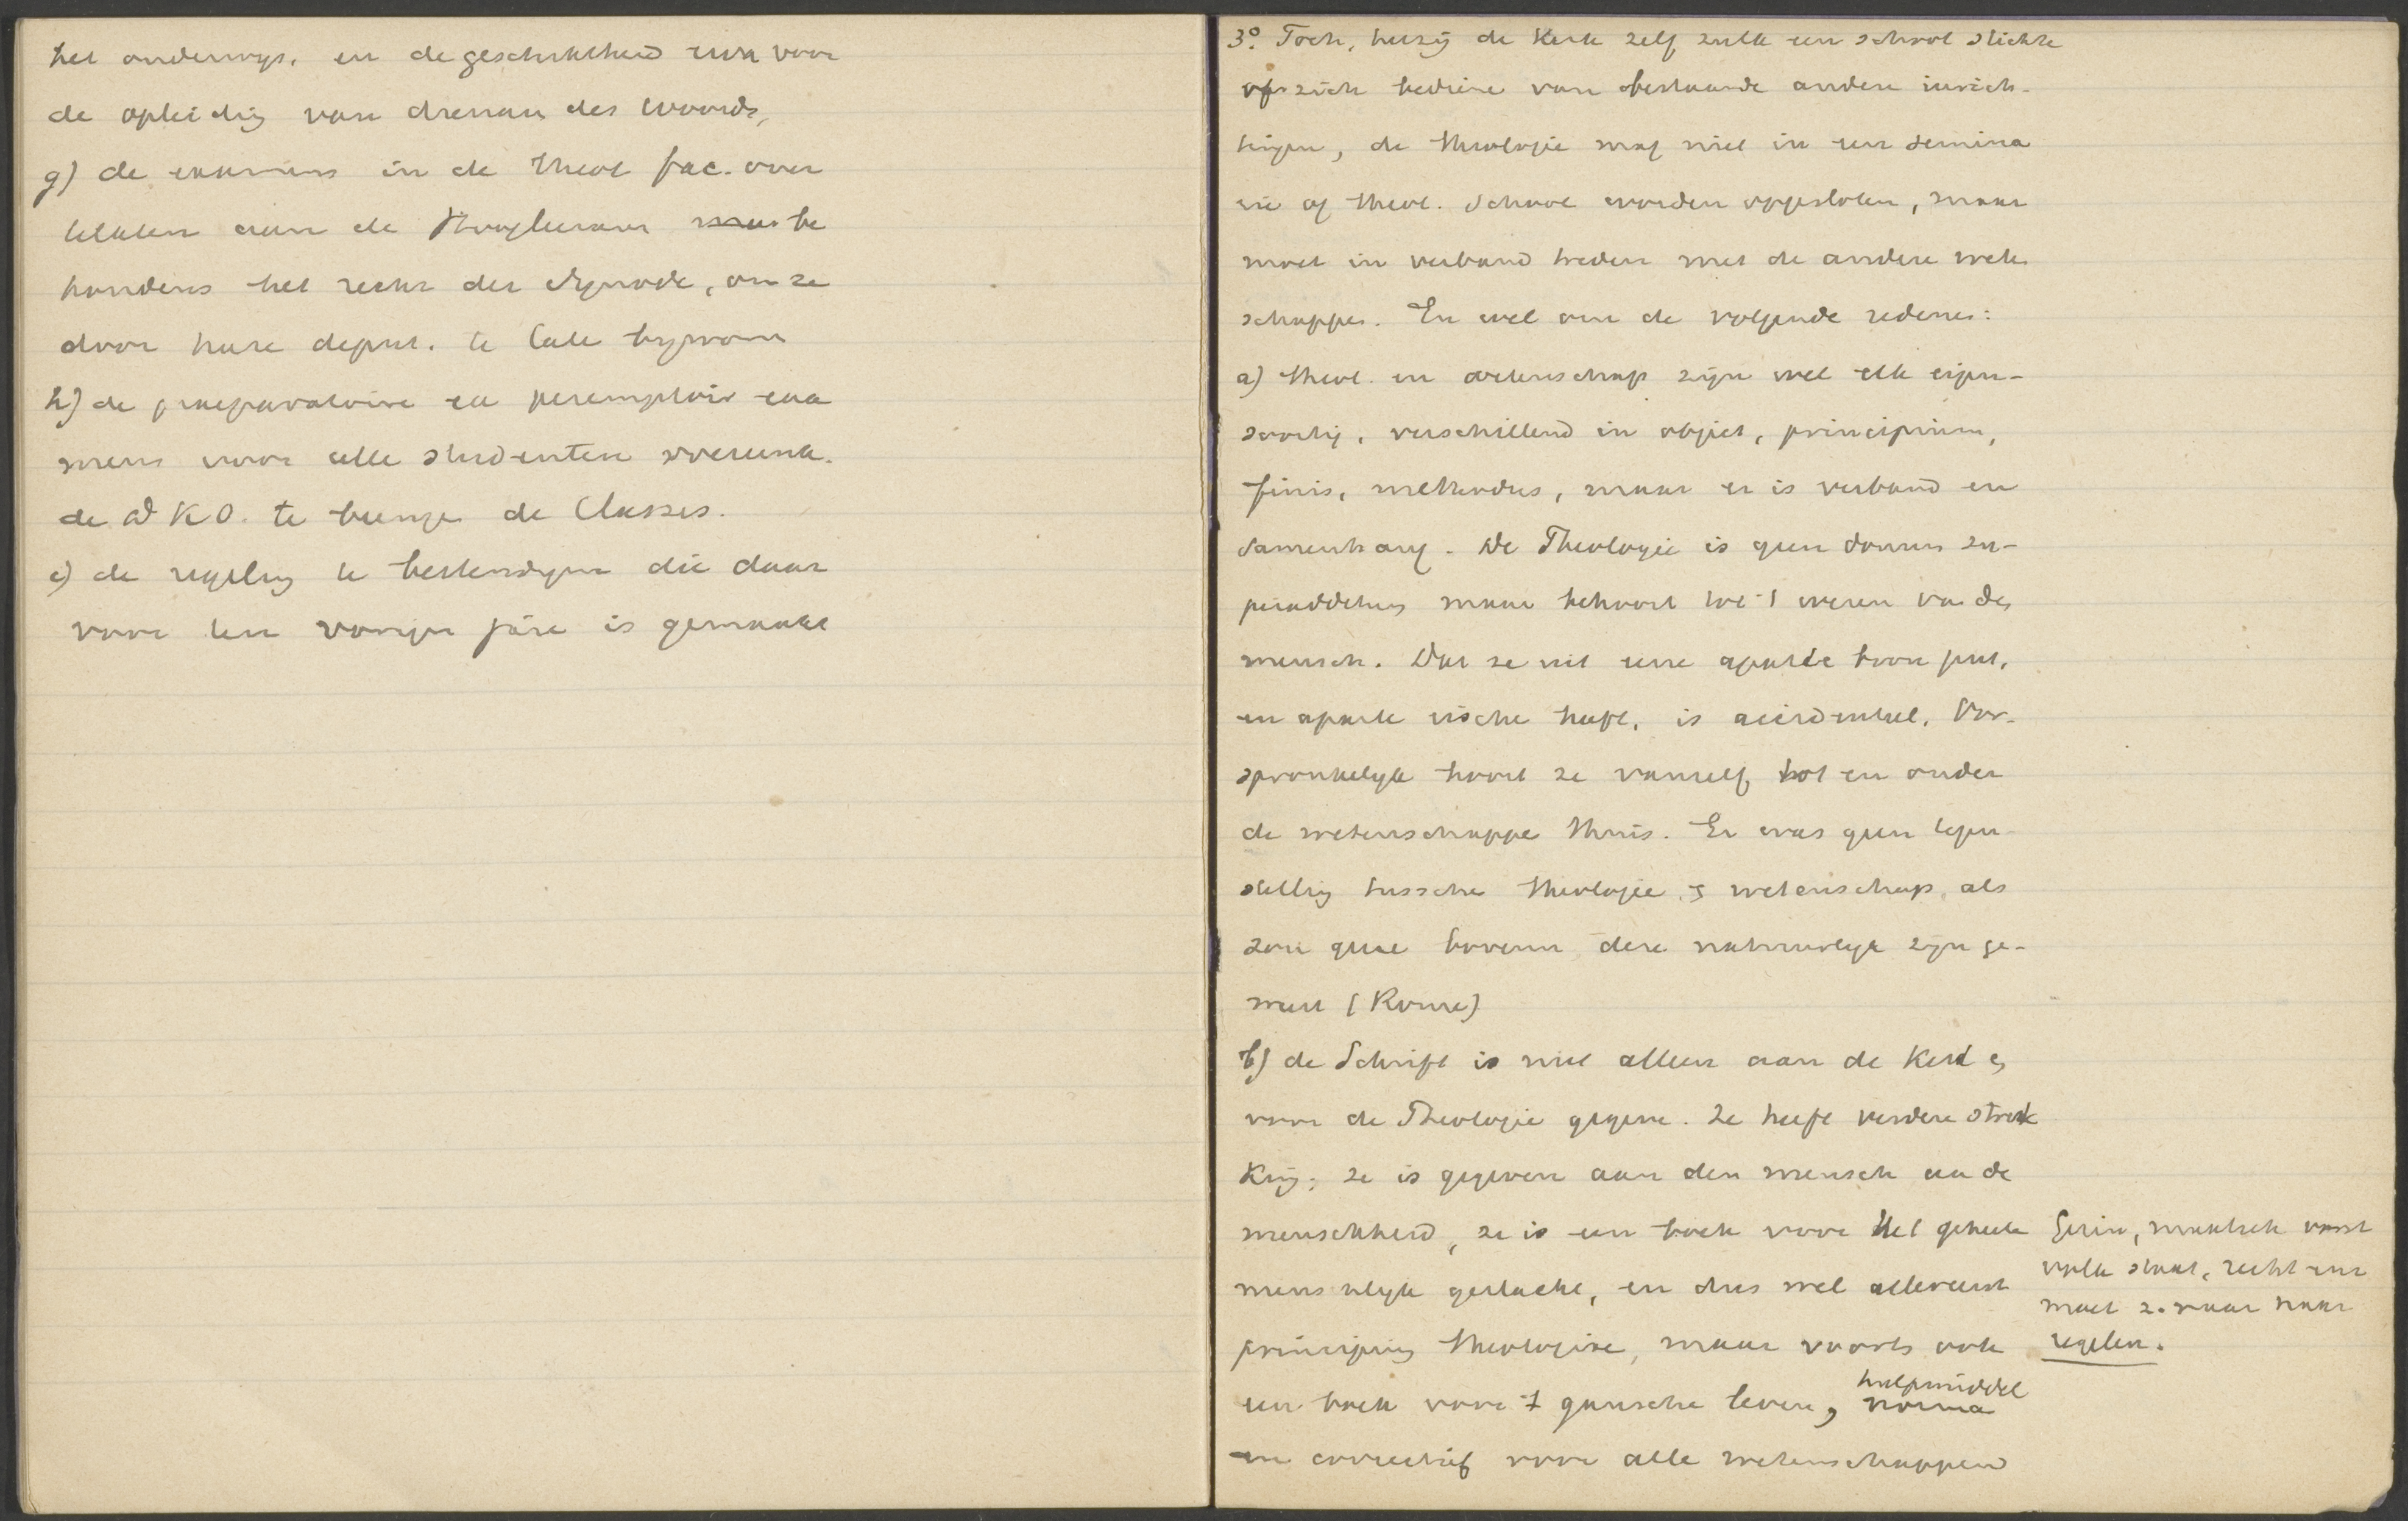 het onderwijs. en de geschiktheid ervan voor
de opleiding van dienaren des Woords,
g) de examens in de theol fac. over
telaten aan de Hoogleeraren be
houdens het recht der Synode, om ze
door hare deput. te laten bijwonen
h) de praeparatoire en peremptoir exa
mens voor alle studenten overeenk.
de D K O. te brengen de Classes.
i) de regeling te bestendigen die daar
voor ten vorigen jare is gemaakt
3º. Toch, hetzij de Kerk zelf zulk een school stichte
of zich bediene van bestaande andere inrich-
tingen, de theologie mag niet in een semina
rie of theol. School worden opgesloten, maar
moet in verband treden met de andere weten
schappen. En wel om de volgende redenen:
a) theol. en wetenschap zijn wel elk eigen-
soortig, verschillend in object, principium,
finis, methodus, maar er is verband en
samenhang. De Theologie is geen donum su-
peradditum maar behoort tot 't wezen van den
mensch. Dat ze uit eene aparte bron put,
en aparte heeft, is accidenteel. Oor-
spronkelijk hoort ze vanzelf bij en onder
de wetenschappen thuis. Er was geen tegen
stelling tusschen theologie en wetenschap, als
zou gene boven deze natuurlijk zijn ge-
weest (Rome)
b) de Schrift is niet alleen aan de Kerk en
voor de Theologie gegeven. Ze heeft verdere strek
king; ze is gegeven aan den mensch aan de
menschheid, ze is een boek voor het geheele
menschelijk geslacht, en dus wel allereerst
principium theologiae, maar voorts ook
een boek voor 't gansche leven, hulpmiddel norma
en correctief voor alle wetenschappen
Gezin, maatsch
volk staat, recht enz
moet z. naar haar
regelen.